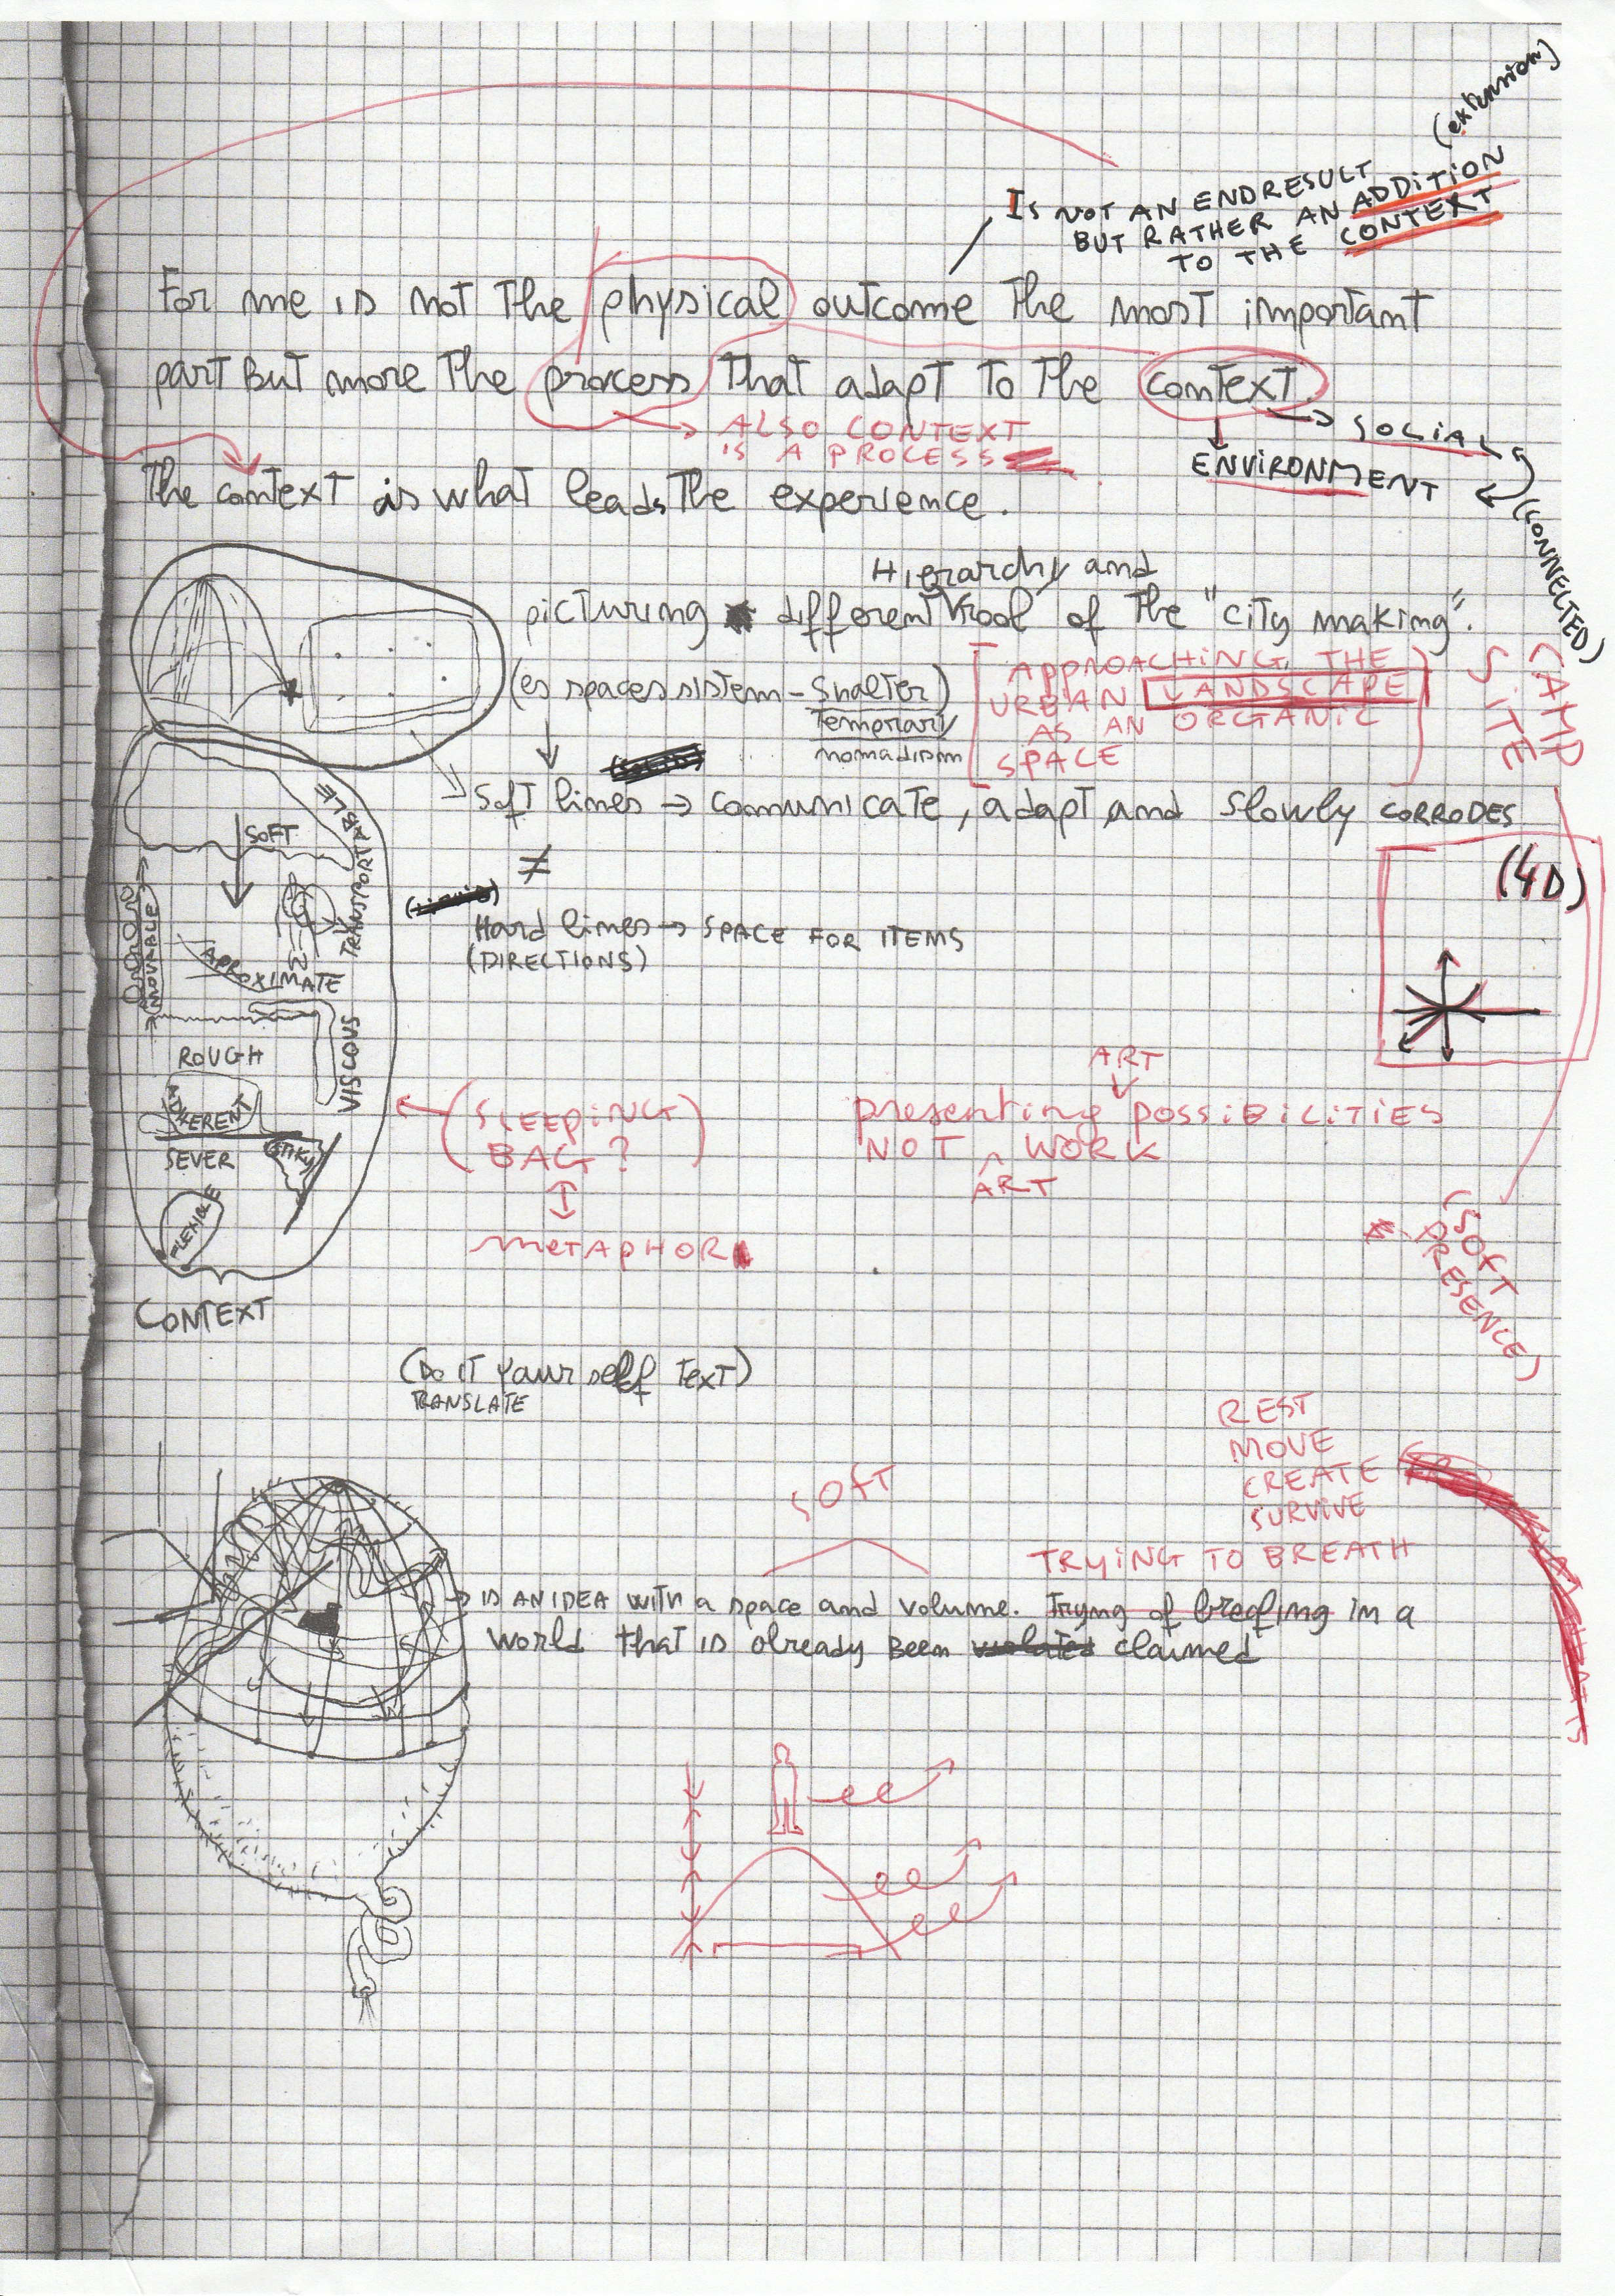 (extension)
Is NOT AN ENDRESULT
BUT RATHER AN ADDITION
TO THE CONTEXT
For me is not The physical outcome The most important
part But more The process That adapt To The context.
ALSO CONTEXT
IS A PROCESS
SOCIAL
ENVIRONMENT
(CONNECTED)
The context is what leads The experience.
Hierarchy and
picturing different of The "city making".
(es spaces sistem - Shelter)
Temporary
nomadism
APPROACHING THE
URBAN LANDSCAPE
AS AN ORGANIC
SPACE
CAMP
SITE
Soft lines → comunicate, adapt and slowly CORRODES
≠
Hard lines → SPACE FOR ITEMS
(DIRECTIONS)
(4D)
SOFT
TRANSPORTABLE
MOVABLE
APROXIMATE
ROUGH
VISCOUS
ADHERENT
SEVER
STIKY
FLEXIBLE
CONTEXT
(SLEEPING
BAG?)
METAPHOR
ART
presenting POSSIBILITIES
NOT WORK
ART
(SOFT
PRESENCE)
(Do iT Your self Text)
TRANSLATE
REST
MOVE
CREATE
SURVIVE
TRYING TO BREATH
SOFT
→ IS AN IDEA WITH a space and volume. Tryng of in a
World that is already Been violated claimed